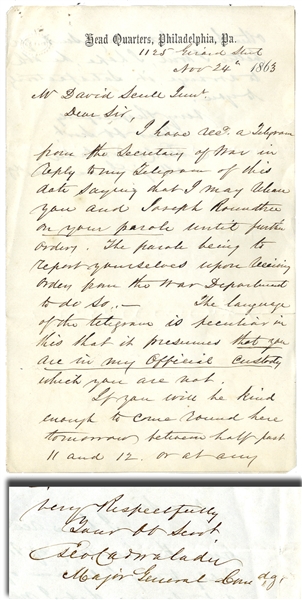 Head Quarters, Philadelphia, Pa.
1125 Girard Street
Nov 24th 1863
Mr David Scull Junr.
Dear Sir,
I have recd. a Telegram
from the Secretary of War in
reply to my Telegram of this
date saying that I may release
you and Joseph Roundtree
on your parole until further
orders. The parole being to
report yourselves upon receiving
orders from the War Department
to do so. — The language
of the telegram is peculiar in
this that it presumes that you
are in my Official custody
which you are not.
If you will be kind
enough to come round here
tomorrow between half past
11 and 12. or at any
very Respectfully
Your Ob Servt
Geo Cadwalader
Major General Comdg.